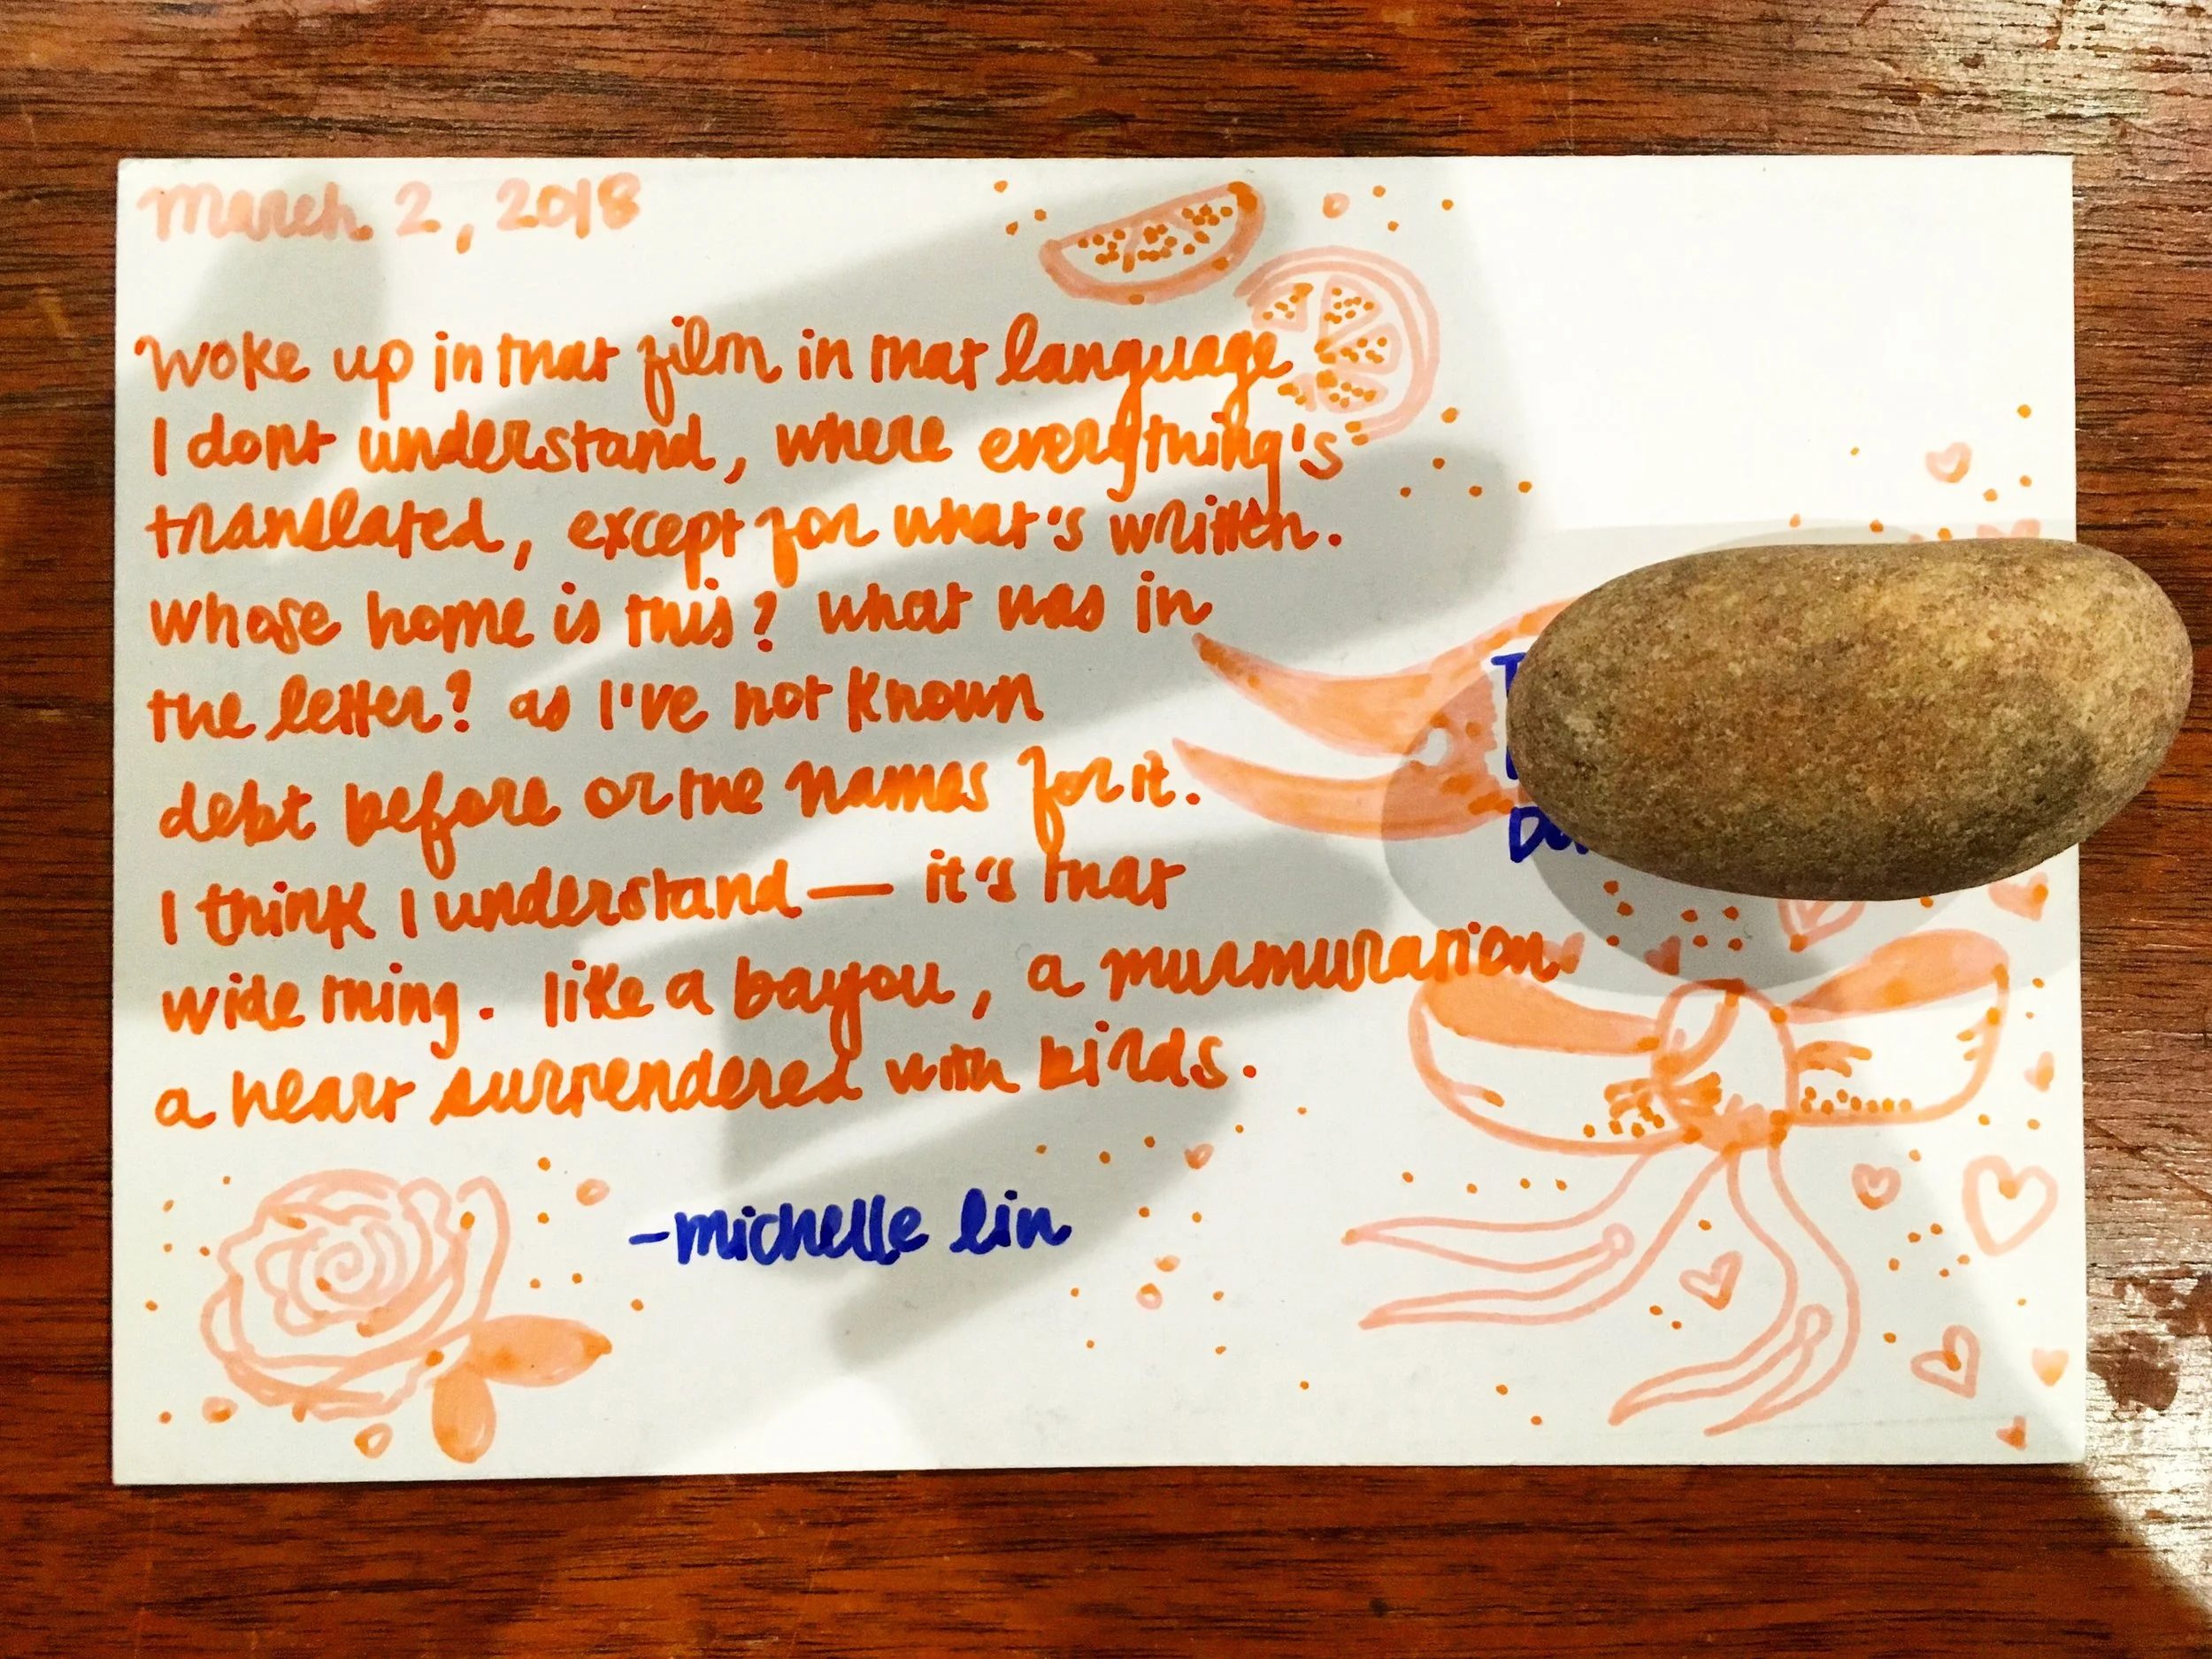 March 2, 2018
Woke up in that film in that language
I dont understand, where everything's
translated, except for what's written.
whose home is this? what was in
the letter? as I've not known
debt before or the names for it.
I think I understand — it's that
wide thing. like a bayou, a murmuration.
a heart surrendered with birds.
-michelle lin